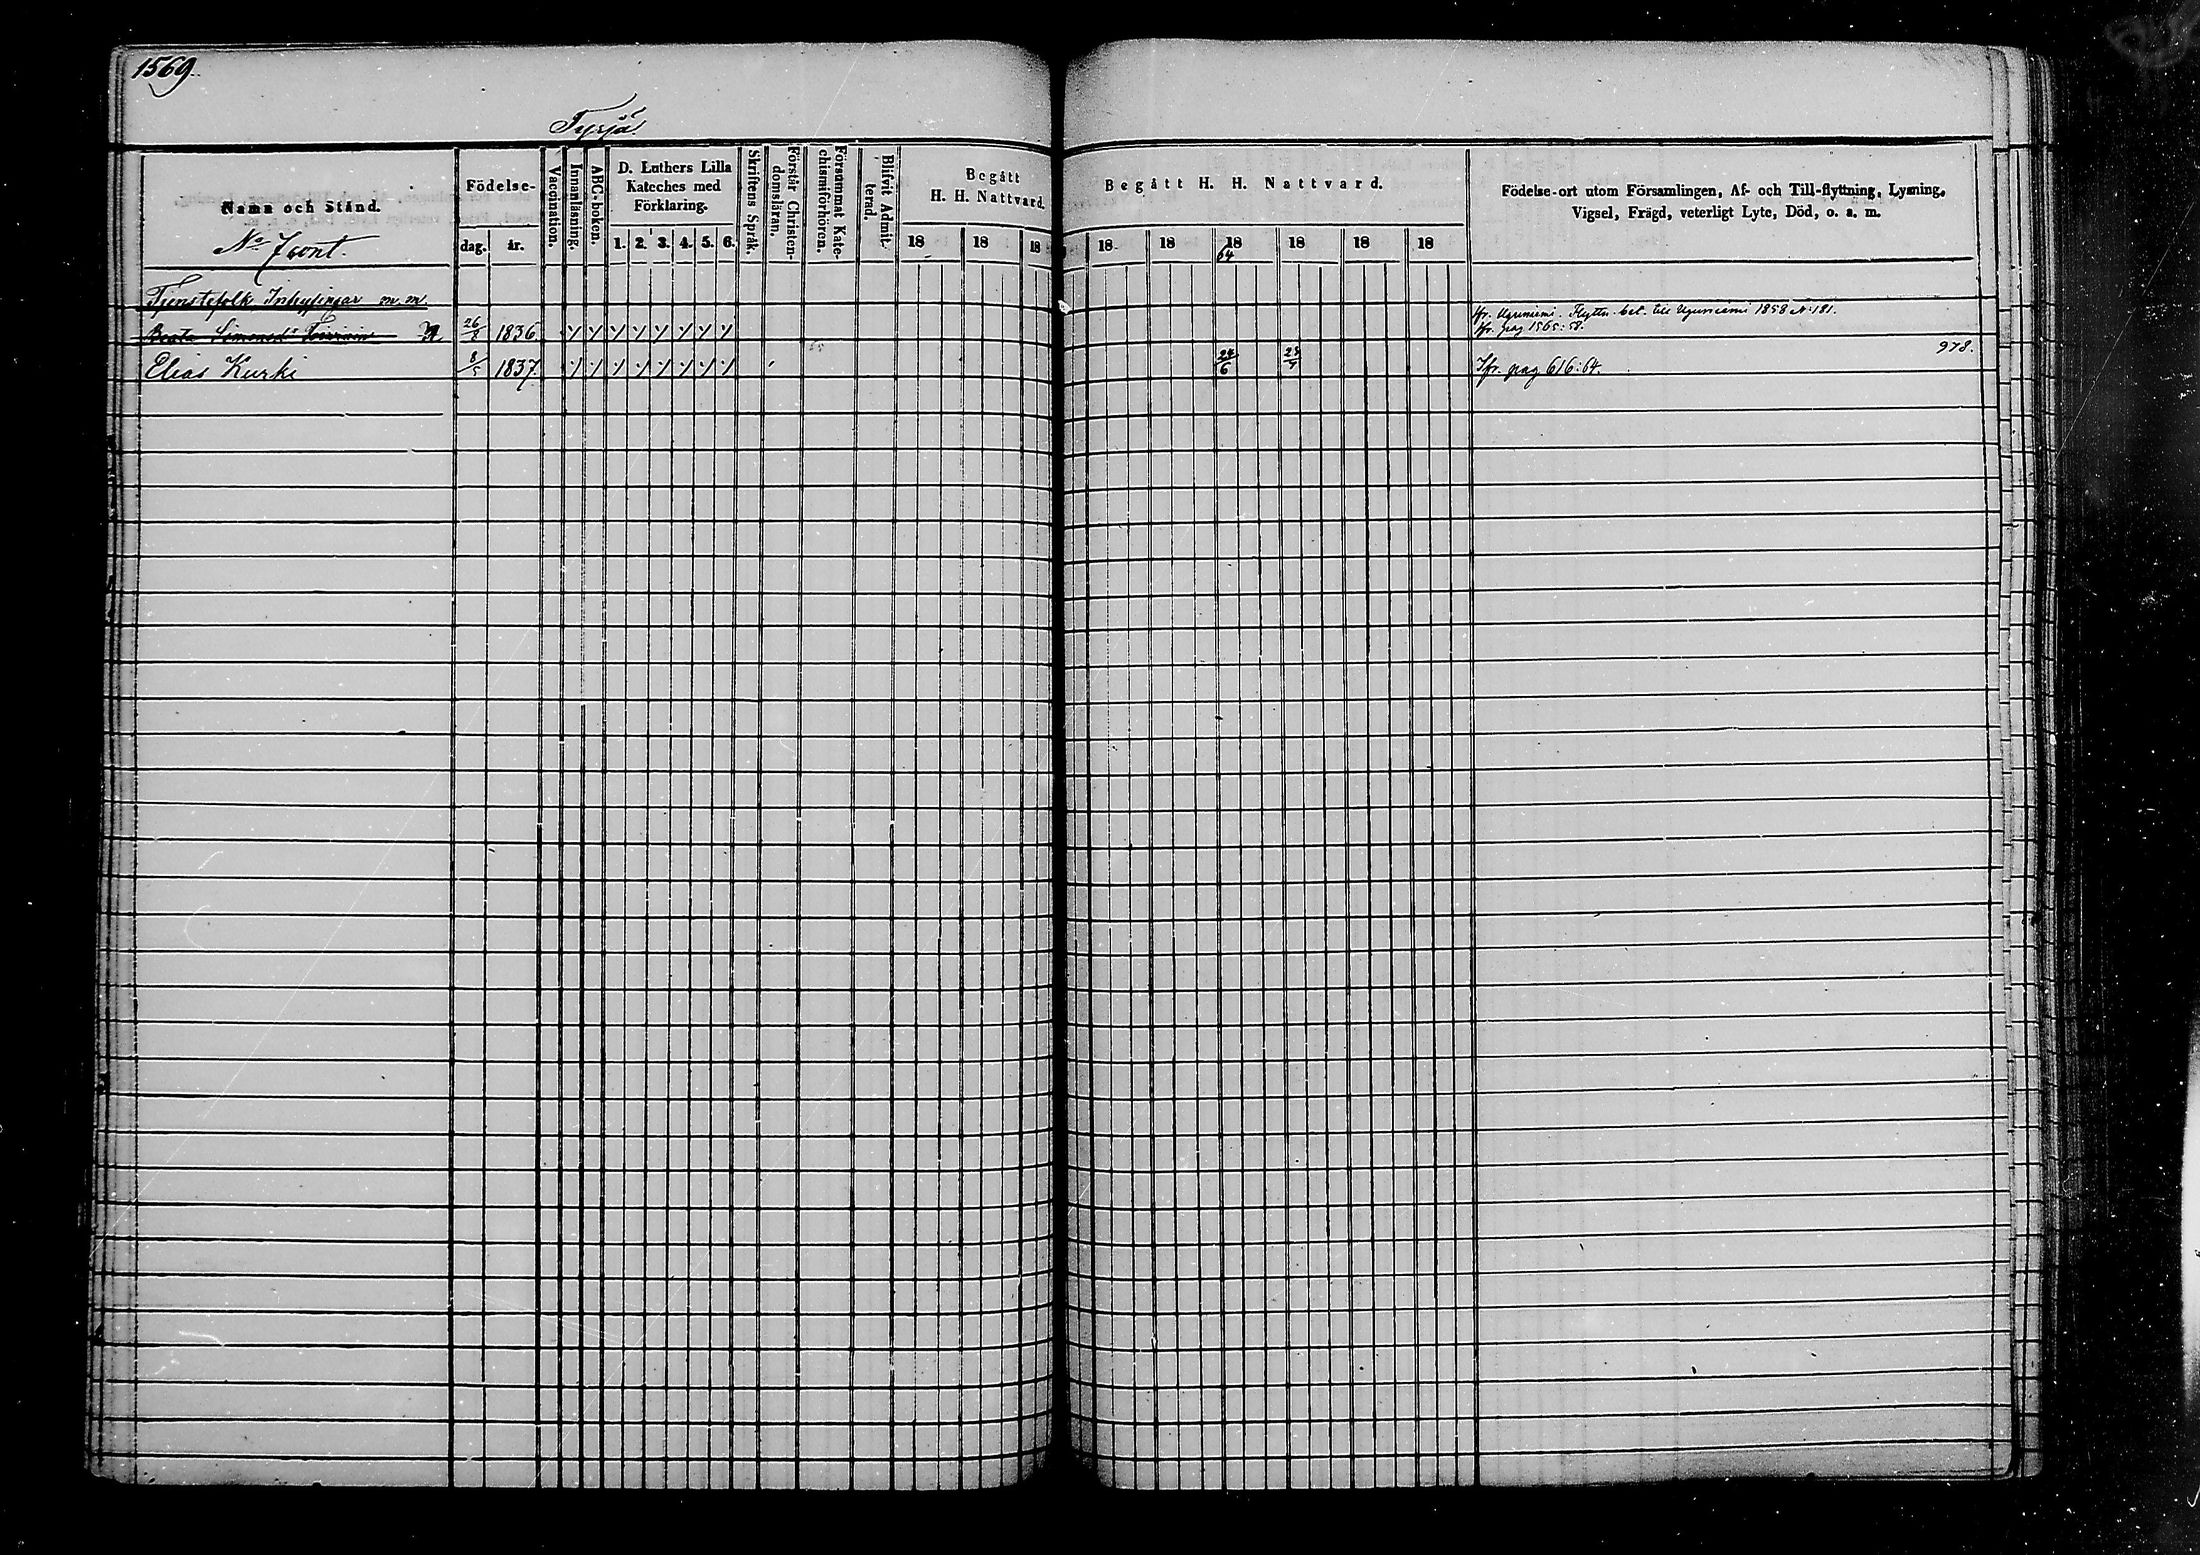 1569.
Tyrjä.
Namn och Stånd.
Födelse-
dag.
år.
Vaccination.
Innanläsning.
ABC-boken.
D. Luthers Lilla
Kateches med
Förklaring.
1. 2. 3. 4. 5. 6.
Skriftens Språk.
Förstår Christen-
domsläran.
Försummat Kate-
chismiförhören.
Blifvit Admit-
terad.
Begått
H. H. Nattvard.
18 18 18
Begått H. H. Nattvard.
18 18 18 64 18 18 18
Födelse-ort utom Församlingen, Af- och Till-flyttning, Lysning,
Vigsel, Frägd, veterligt Lyte, Död, o. a. m.
No
Tjenstefolk Inhysingar m. m.
Beata Simonsd:r 26/8 1836 Ifr. Uguniemi. Flyttn. bet. till Uguniemi 1858 N: 181.
Ifr. pag 1565: 58.
978.
Elias Kurki 8/5 1837. 24/6 Ifr. pag 616: 64.